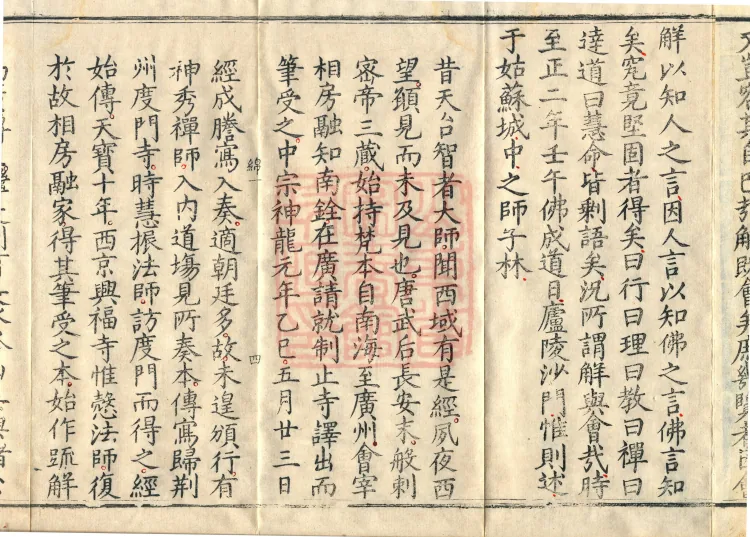 解以知人之言因人言以知佛之言佛言知
矣究竟堅固者得矣曰行曰理曰教曰禪曰
達道曰慧命皆剩語矣況所謂解與會㢤時
至正二年壬午佛成道日廬陵沙門惟則述
于姑蘇城中之師子林
昔天台智者大師聞西域有是經夙夜西
望願見而未及見也唐武后長安末般剌
密帝三藏始持梵本自南海至廣州會宰
相房融知南銓在廣請就制止寺譯出而
筆受之中宗神龍元年乙巳五月廿三日
經成謄寫入奏適朝廷多故未遑頒行有
綿一
四
神秀禪師入內道場見所奏本傳寫歸荆
州度門寺時慧振法師訪度門而得之經
始傳天寶十年西京興福寺惟慤法師復
於故相房融家得其筆受之本始作䟽解